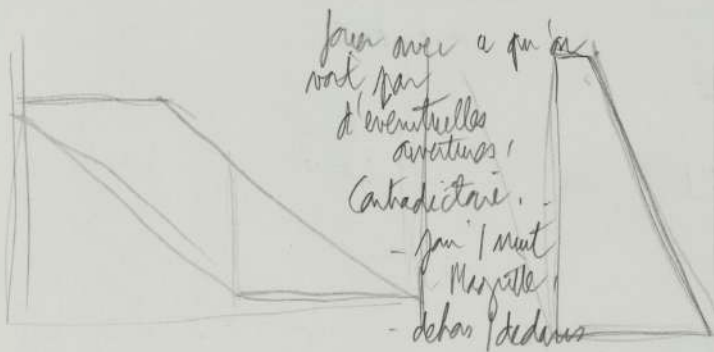 Jouer avec ce qu'on
voit par
d'éventuelles
ouvertures.
Contradictoire.
- jour / nuit
Magritte.
- dehors / dedans